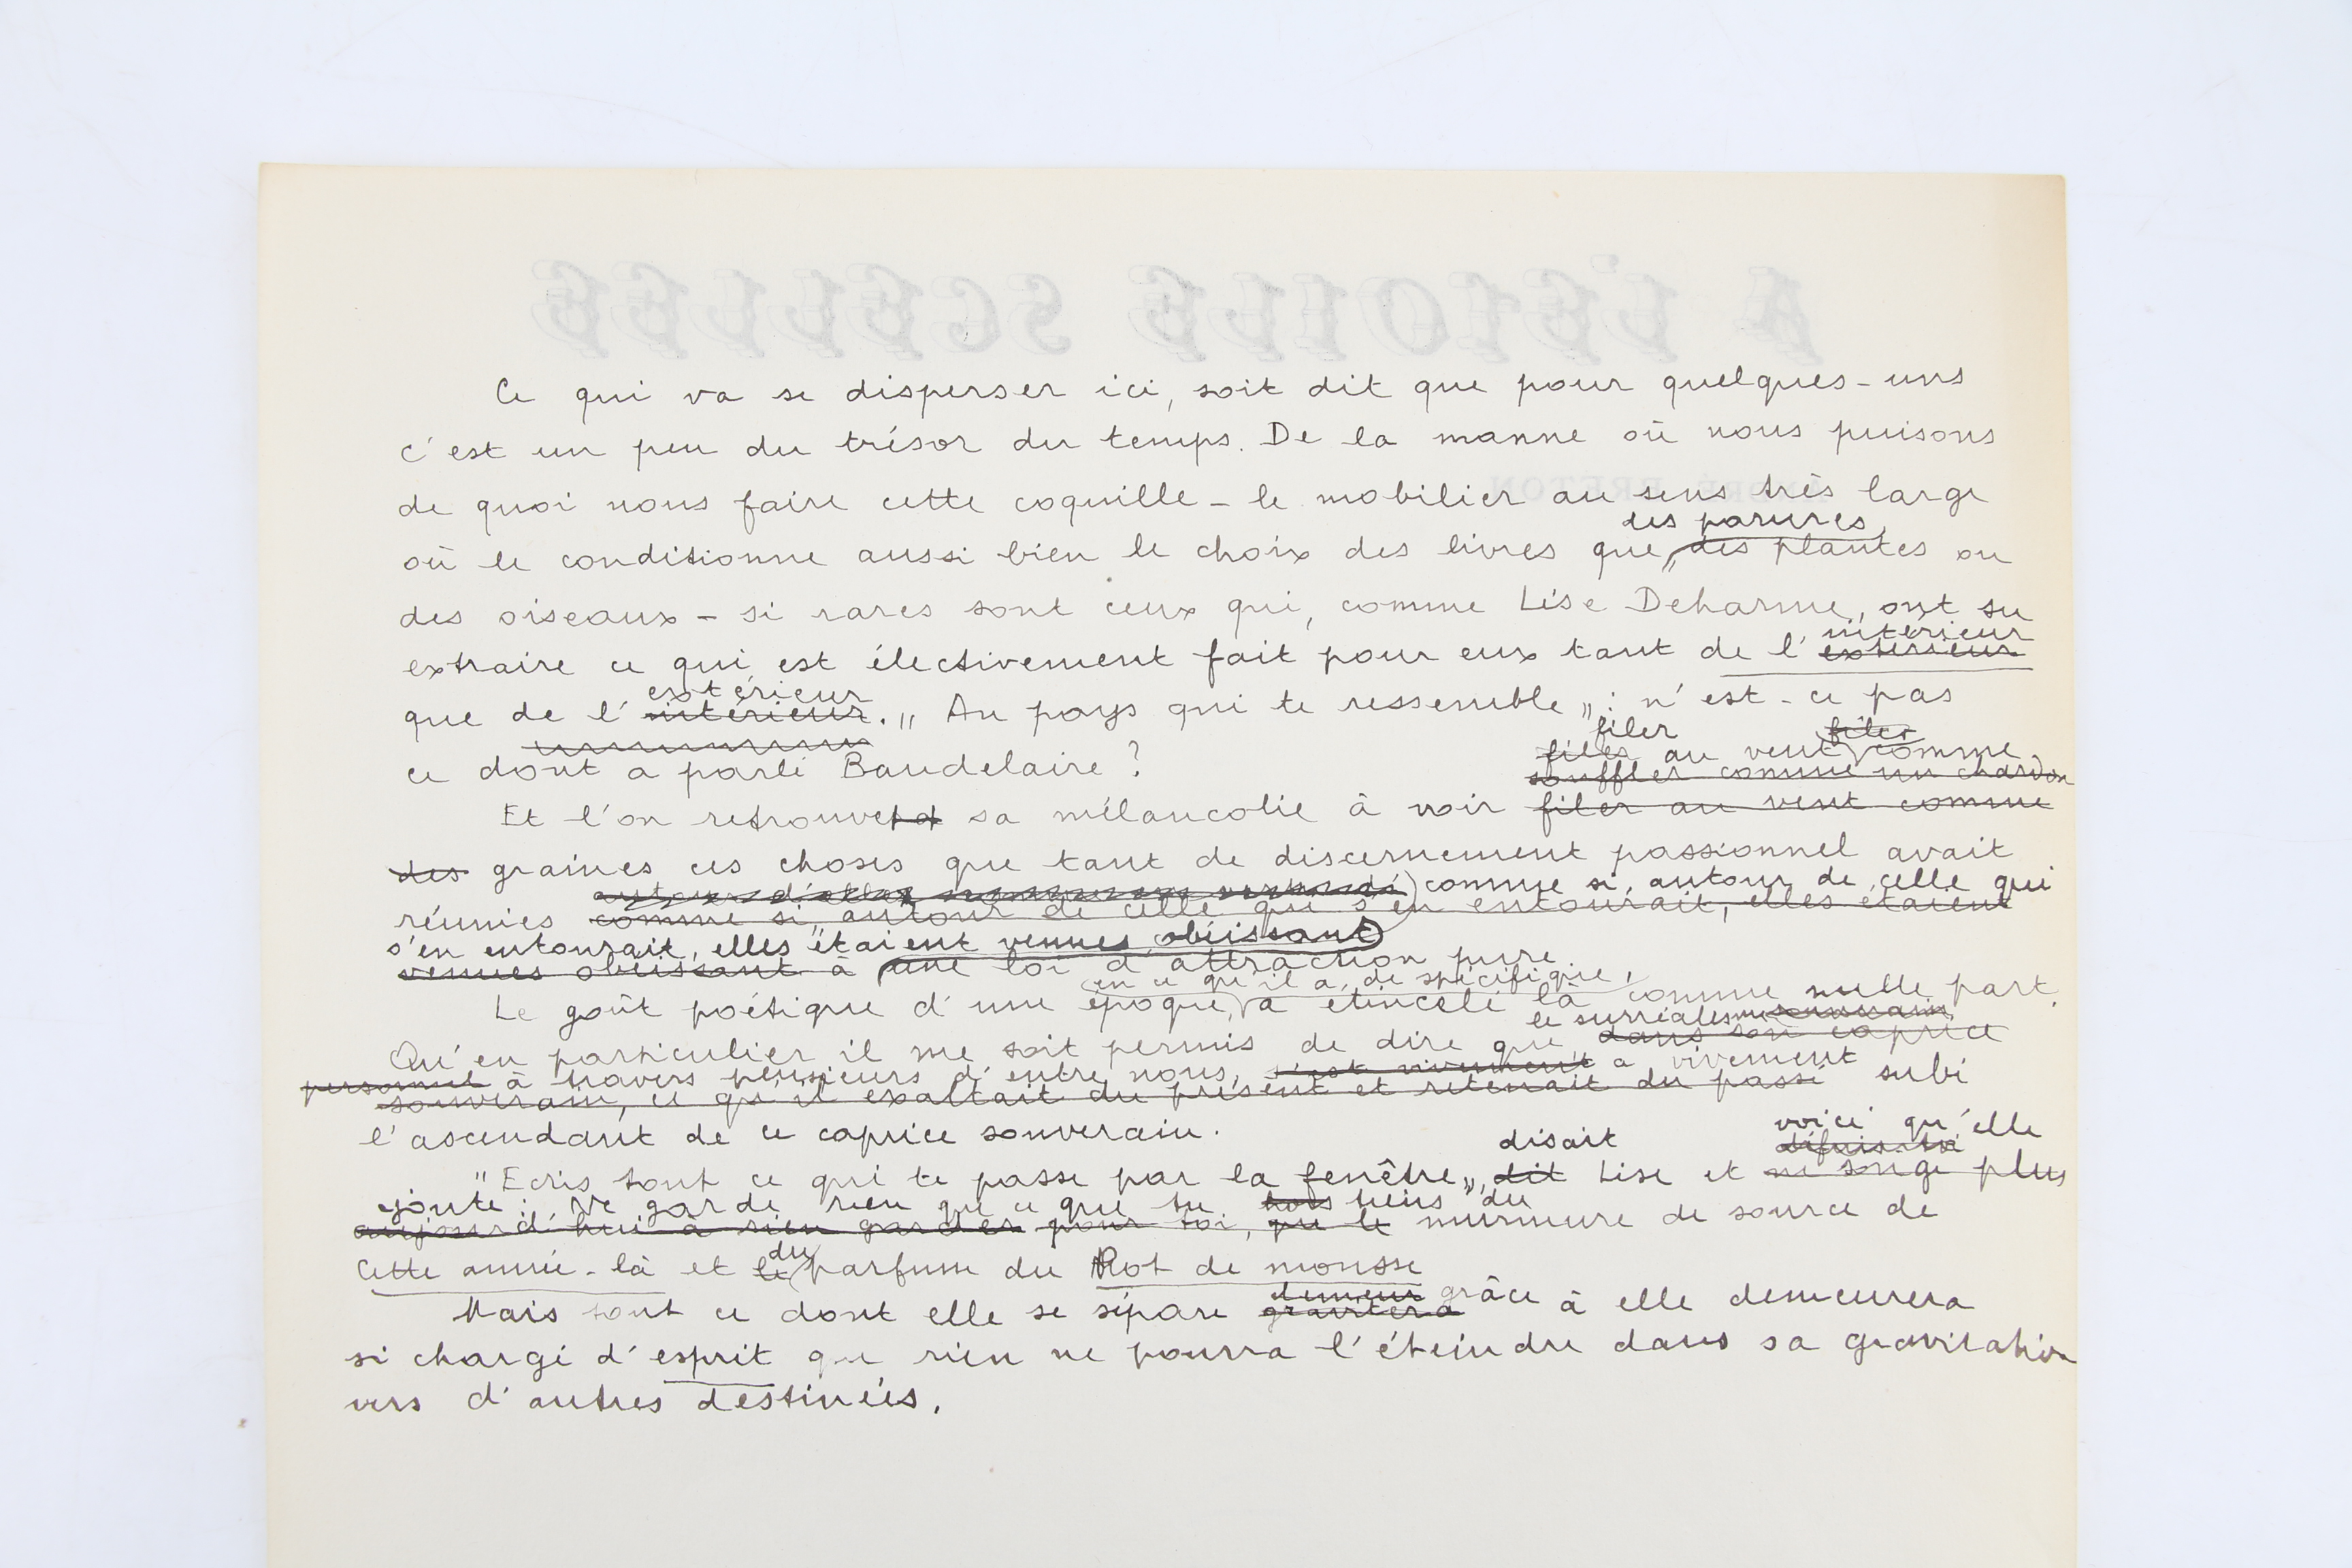 A L'ÉTOILE SCELLÉE
Ce qui va se disperser ici, soit dit que pour quelques-uns
c'est un peu du trésor du temps. De la manne où nous puisons
ANDRÉ BRETON
de quoi nous faire cette coquille – le mobilier au sens très large
des parures,
où le conditionne aussi bien le choix des livres que des plantes ou
des oiseaux – si rares sont ceux qui, comme Lise Deharme, ont su
intérieur
extraire ce qui est électivement fait pour eux tant de l'extérieur
extérieur
que de l'intérieur. "Au pays qui te ressemble" : n'est-ce pas
filer filer
ce dont a parlé Baudelaire ? au vent comme
souffler comme un chardon
Et l'on retrouve sa mélancolie à voir filer au vent comme
des graines ces choses que tant de discernement passionnel avait
comme si, autour de celle qui
réunies comme si, autour de celle qui s'en entourait, elles étaient
s'en entourait, elles étaient venues, obéissant
venues obéissant à une loi d'attraction pure.
en ce qu'il a de spécifique,
Le goût poétique d'une époque, a étincelé là comme nulle part.
le surréalisme
Qu'en particulier il me soit permis de dire que dans son caprice
personnel à travers plusieurs d'entre nous, s'est vivement a vivement subi
souverain, ce qu'il exaltait du présent et retenait du passé
l'ascendant de ce caprice souverain.
disait voici qu'elle
"Ecris tout ce qui te passe par la fenêtre", dit Lise et ne songe plus
ajoute : Ne garde rien que ce que tu tiens du
aujourd'hui à rien garder pour toi, que le murmure de source de
du
Cette année-là et le parfum du Pot de mousse
demeure grâce à elle demeurera
Mais tout ce dont elle se sépare gravitera
si chargé d'esprit que rien ne pourra l'éteindre dans sa gravitation
vers d'autres destinées.